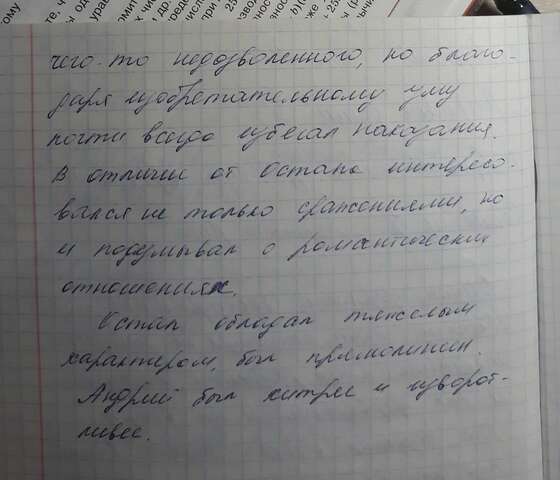 чего-то недозволенного, но благо-
даря изобретательному уму
почти всегда избегал наказания.
В отличии от Остапа интересо-
вался не только сражениями, но
и подумывал о романтических
отношениях.
Остап обладал тяжелым
характером, был прямолинеен.
Андрий был хитрее и изворот-
ливее.